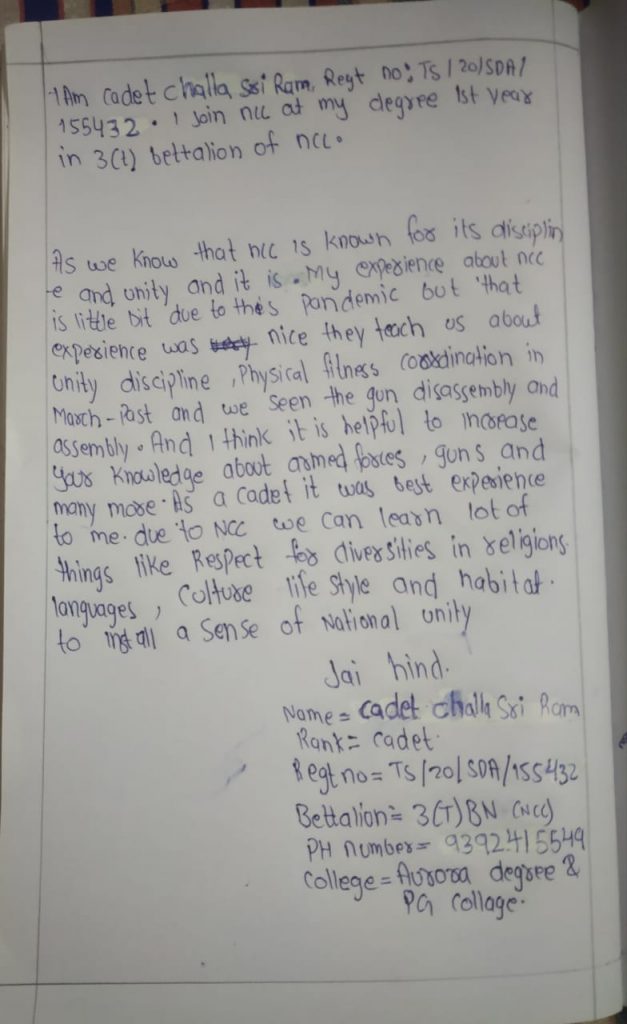 I Am cadet challa Sri Ram, Regt no: TS/20/SDA/
155432. I Join ncc at my degree 1st year
in 3(t) bettalion of ncc.
As we know that ncc is known for its disciplin
e and unity and it is. My experience about ncc
is little bit due to this pandemic but that
experience was very nice they teach us about
unity discipline, Physical fitness coordination in
March-Past and we seen the gun disassembly and
assembly. And I think it is helpful to increase
your knowledge about armed forces, guns and
many more. As a cadet it was best experience
to me. due to NCC we can learn lot of
things like Respect for diversities in religions.
languages, Culture life style and habitat.
to install a Sense of National unity
Jai hind.
Name = cadet challa Sri Ram
Rank = cadet.
Regt no = TS/20/SDA/155432
Bettalion = 3(T)BN (NCC)
PH number = 9392415549
College = Aurora degree &
PG Collage.